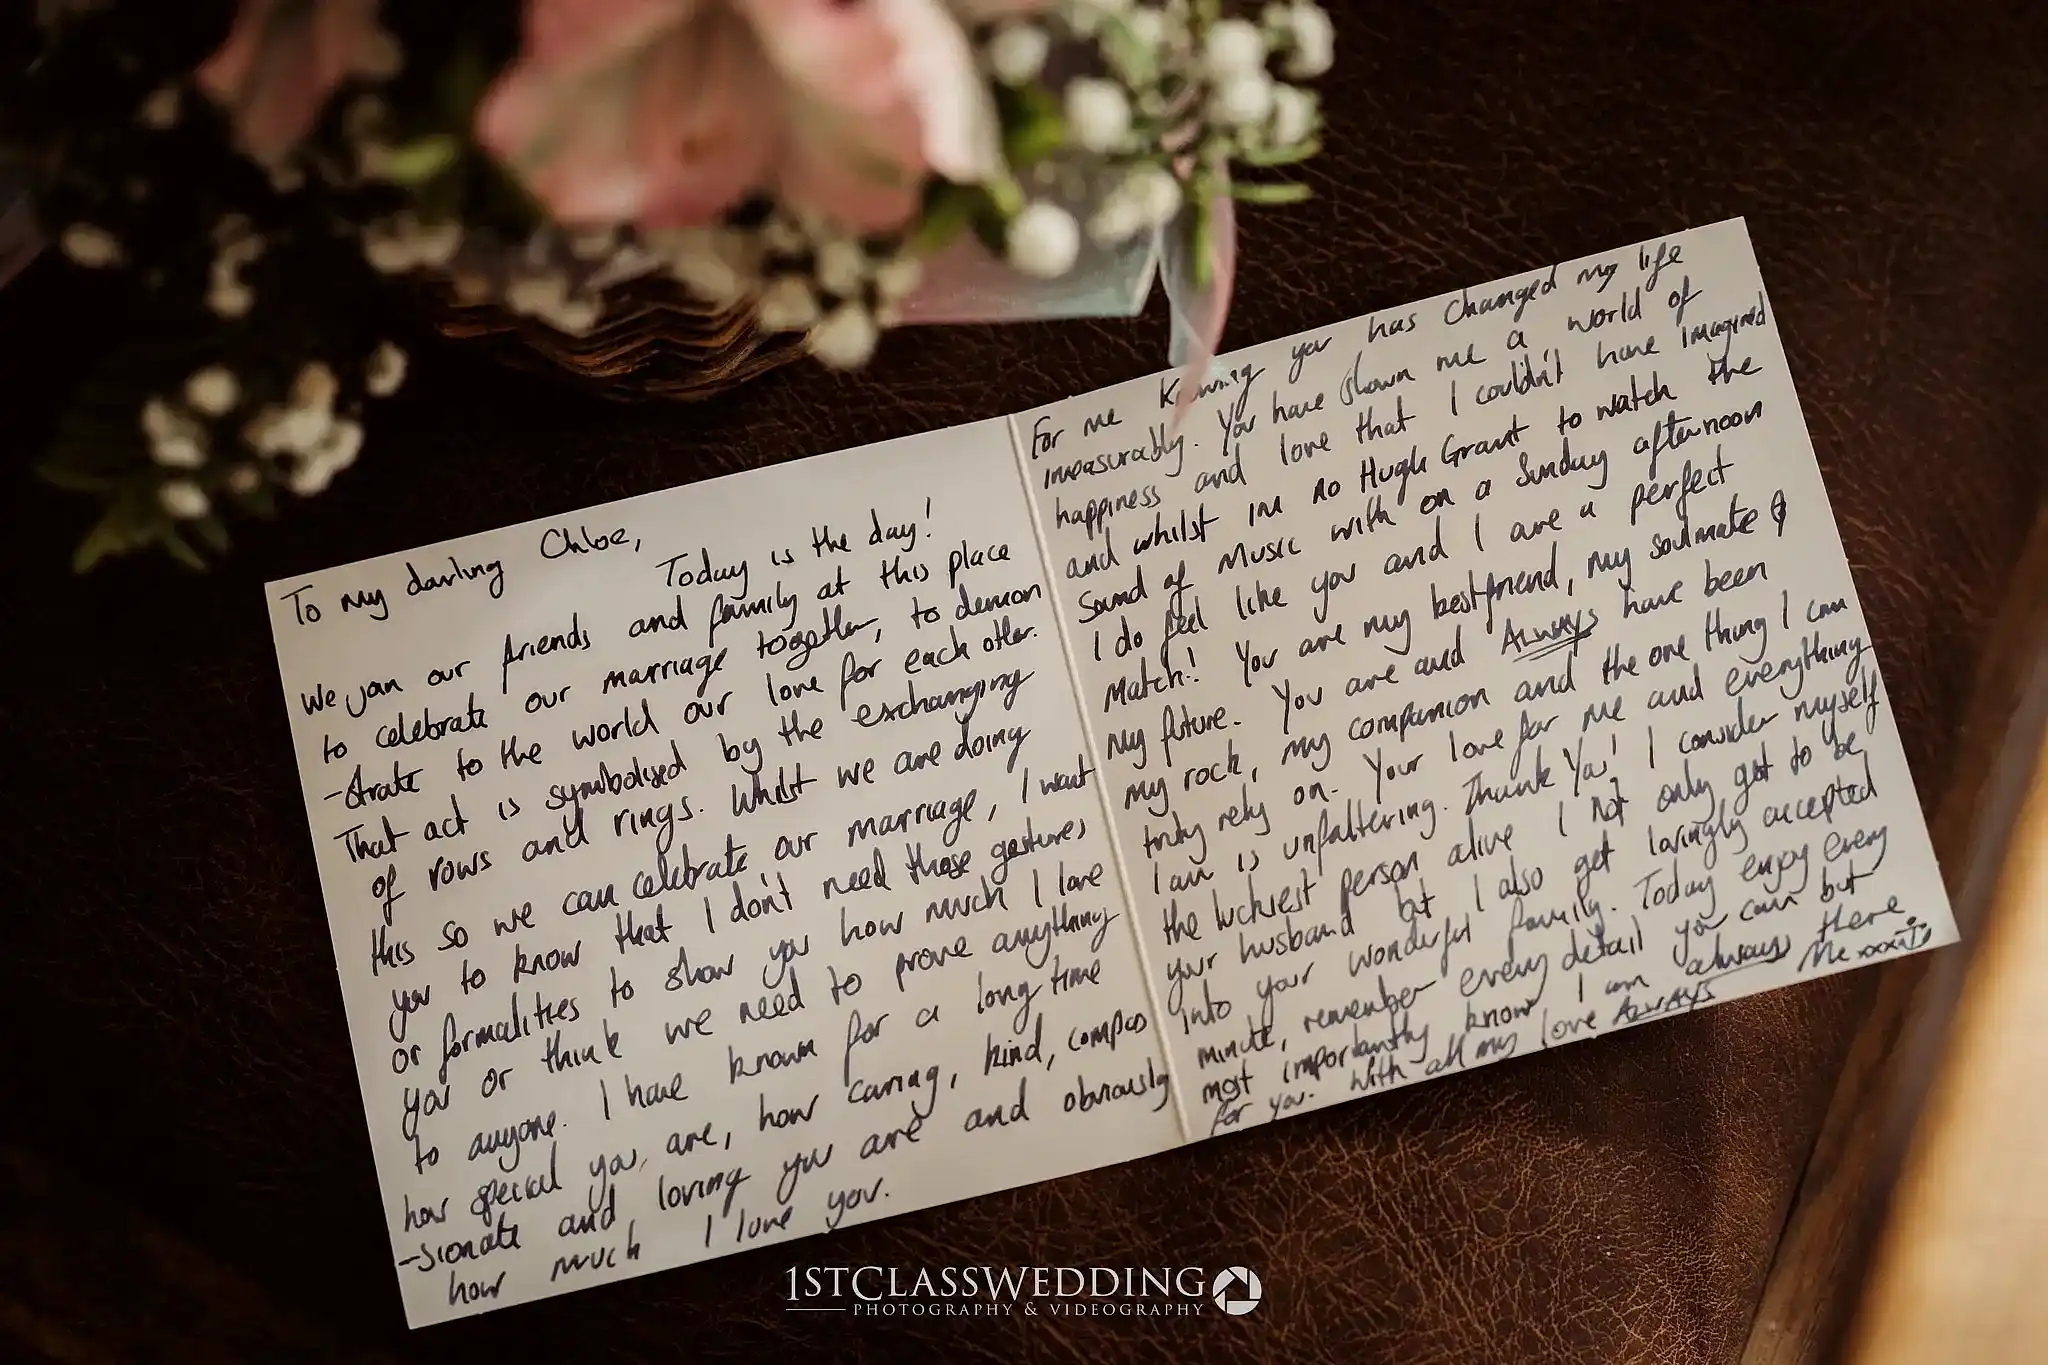 To my darling Chloe,
Today is the day!
We join our friends and family at this place
to celebrate our marriage together, to demon
-strate to the world our love for each other.
That act is symbolised by the exchanging
of vows and rings. Whilst we are doing
this so we can celebrate our marriage, I want
you to know that I don't need those gestures
or formalities to show you how much I love
you or think we need to prove anything
to anyone. I have known for a long time
how special you are, how caring, kind, compas
-sionate and loving you are and obviously
how much I love you.
For me knowing you has changed my life
imeasurably. You have shown me a world of
happiness and love that I couldn't have imagined
and whilst im no Hugh Grant to watch the
Sound of Music with on a Sunday afternoon
I do feel like you and I are a perfect
Match! You are my bestfriend, my soulmate &
my future. You are and ALWAYS have been
my rock, my companion and the one thing I can
truly rely on. Your love for me and everything
I am is unfaltering. Thank You! I consider myself
the luckiest person alive I not only get to be
your husband but I also get lovingly accepted
into your wonderful family. Today enjoy every
minute, remember every detail you can but
most importantly know I am always there
for you. With all my love ALWAYS Me xxx
1STCLASSWEDDING
PHOTOGRAPHY & VIDEOGRAPHY